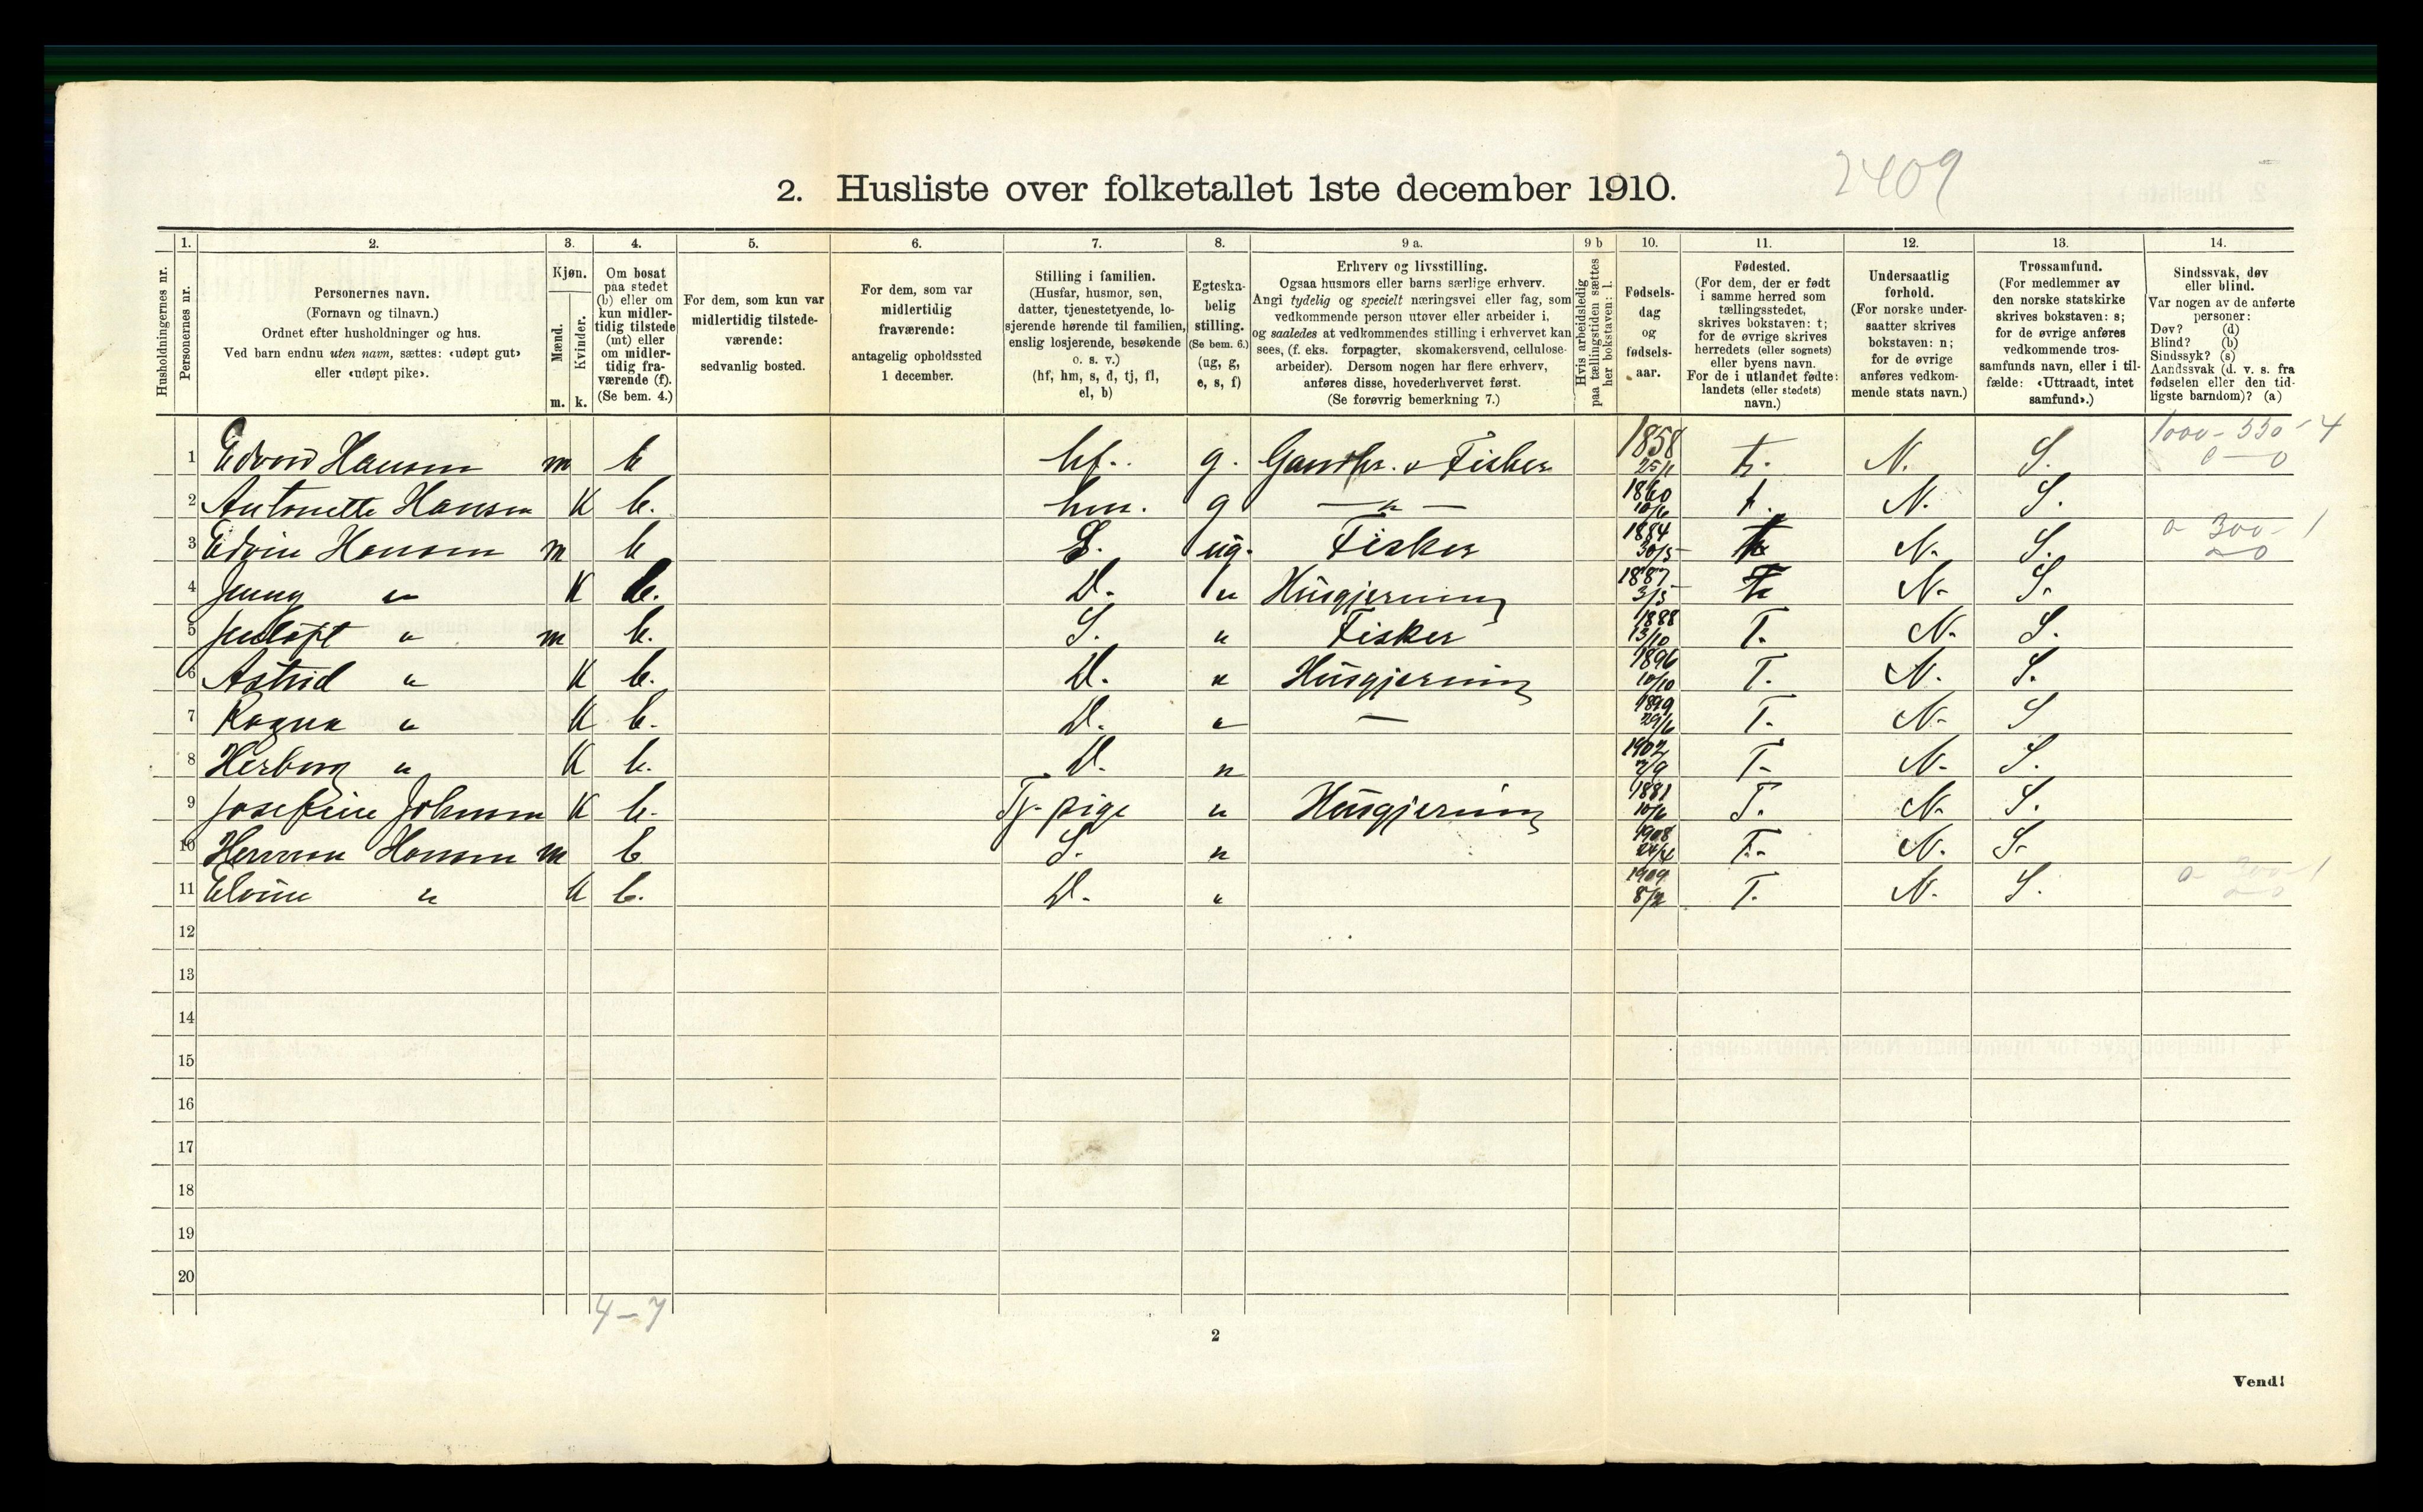 2409
2. Husliste over folketallet 1ste december 1910.
1. 2. 3. 4. 5. 6. 7. 8. 9 a. 9 b 10. 11. 12. 13. 14.
Husholdningernes nr.
Personernes nr.
Personernes navn.
(Fornavn og tilnavn.)
Ordnet efter husholdninger og hus.
Ved barn endnu uten navn, sættes: «udøpt gut»
eller «udøpt pike».
Kjøn.
Mænd.
Kvinder.
m. k.
Om bosat
paa stedet
(b) eller om
kun midler-
tidig tilstede
(mt) eller
om midler-
tidig fra-
værende (f).
(Se bem. 4.)
For dem, som kun var
midlertidig tilstede-
værende:
sedvanlig bosted.
For dem, som var
midlertidig
fraværende:
antagelig opholdssted
1 december.
Stilling i familien.
(Husfar, husmor, søn,
datter, tjenestetyende, lo-
sjerende hørende til familien,
enslig losjerende, besøkende
o. s. v.)
(hf, hm, s, d, tj, fl,
el, b)
Egteska-
belig
stilling.
(Se bem. 6.)
(ug, g,
e, s, f)
Erhverv og livsstilling.
Ogsaa husmors eller barns særlige erhverv.
Angi tydelig og specielt næringsvei eller fag, som
vedkommende person utøver eller arbeider i,
og saaledes at vedkommendes stilling i erhvervet kan
sees, (f. eks. forpagter, skomakersvend, cellulose-
arbeider). Dersom nogen har flere erhverv,
anføres disse, hovederhvervet først.
(Se forøvrig bemerkning 7.)
Hvis arbeidsledig
paa tællingstiden sættes
her bokstaven: l.
Fødsels-
dag
og
fødsels-
aar.
Fødested.
(For dem, der er født
i samme herred som
tællingsstedet,
skrives bokstaven: t;
for de øvrige skrives
herredets (eller sognets)
eller byens navn.
For de i utlandet fødte:
landets (eller stedets)
navn.)
Undersaatlig
forhold.
(For norske under-
saatter skrives
bokstaven: n;
for de øvrige
anføres vedkom-
mende stats navn.)
Trossamfund.
(For medlemmer av
den norske statskirke
skrives bokstaven: s;
for de øvrige anføres
vedkommende tros-
samfunds navn, eller i til-
fælde: «Uttraadt, intet
samfund».)
Sindssvak, døv
eller blind.
Var nogen av de anførte
personer:
Døv? (d)
Blind? (b)
Sindssyk? (s)
Aandssvak (d. v. s. fra
fødselen eller den tid-
ligste barndom)? (a)
1 Edvard Hansen m b hf. g. Gaardbr. & Fisker 1858 25/11 t. N. S. 1000 - 550 - 4
0 — 0
2 Antonette Hansen K b. hm. g — " — 1860 10/6 t. N. S.
3 Edvin Hansen m b S. ug. Fisker 1884 30/5 t N. S. 0 300 - 1
4 Jenny " K b. D. " Husgjerning 1887 3/5 t N. S.
5 Jentoft " m b. S. " Fisker 1888 13/10 T. N. S.
6 Astrid " K b. D. " Husgjerning 1896 10/10 T. N. S.
7 Ragna " K b. D. " — 1899 29/6 T. N. S
8 Herborg " K b. D. " 1902 2/9 T. N. S.
9 Josefine Johnsen K b. Tj. pige " Husgjerning 1881 10/6 T. N. S.
10 Herman Hansen m b S. " 1908 24/4 T. N. S.
11 Elvine " K b. D. " 1909 8/2 T. N. S. 0 300 - 1
12
13
14
15
16
17
18
19
20
4 - 7
2
Vend!